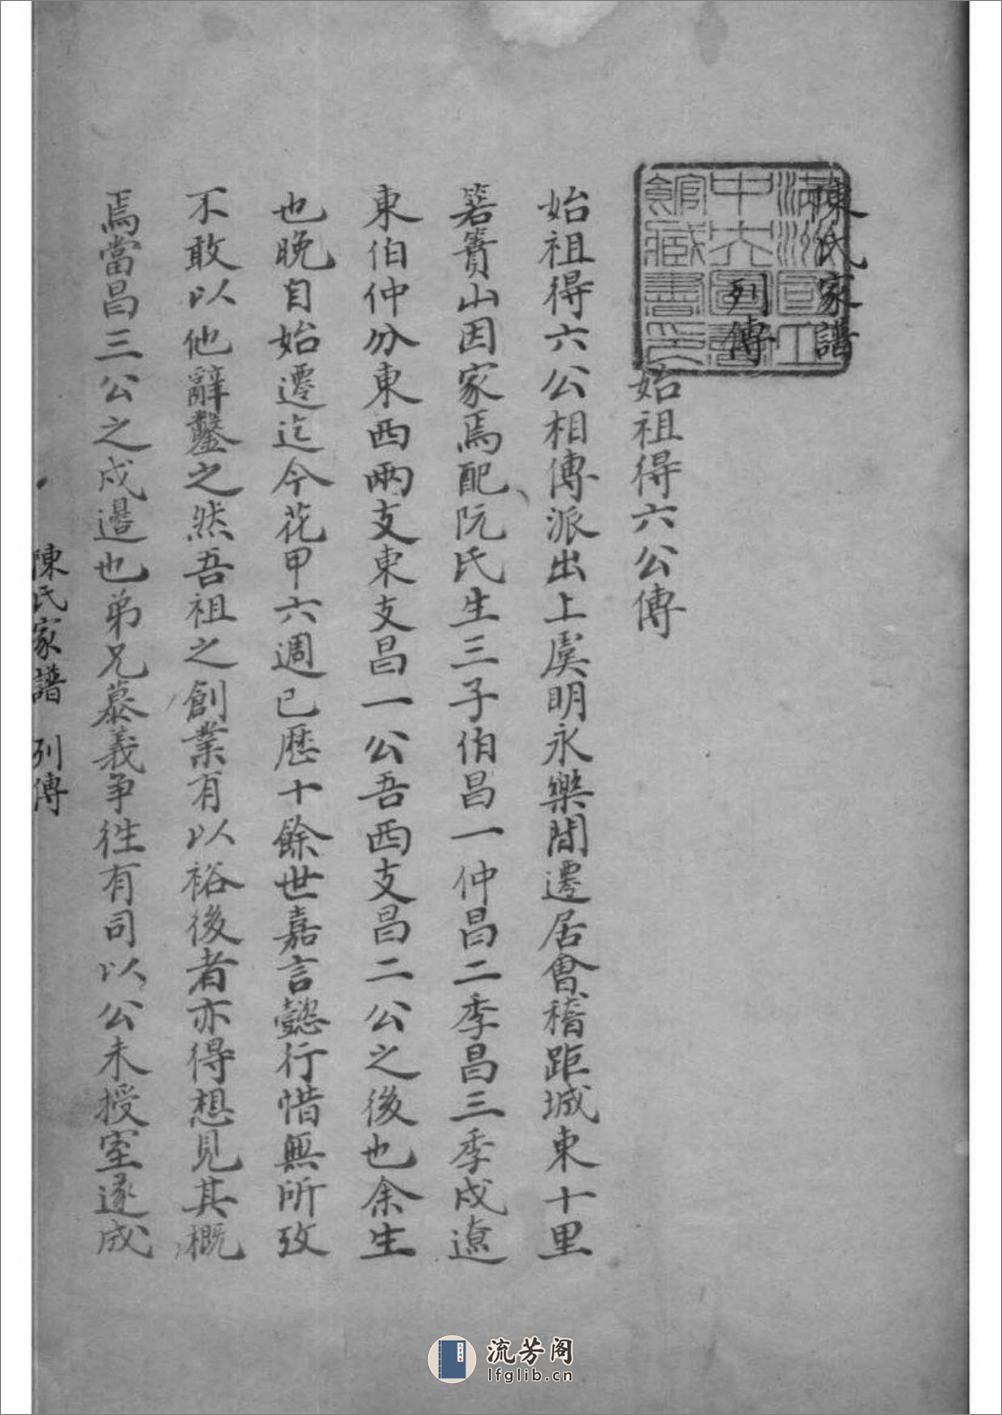 陳氏家譜
列傳
始祖得六公傳
始祖得六公相傳派出上虞明永樂間遷居會稽距城東十里
箬簣山因家焉配阮氏生三子伯昌一仲昌二季昌三季戍遼
東伯仲分東西兩支東支昌一公吾西支昌二公之後也余生
也晚自始遷迄今花甲六週已歷十餘世嘉言懿行惜無所攷
不敢以他辭鑿之然吾祖之創業有以裕後者亦得想見其概
焉當昌三公之戍邊也弟兄慕義争徃有司以公未授室遂成
陳氏家譜 列傳
流芳阁
lfglib.cn